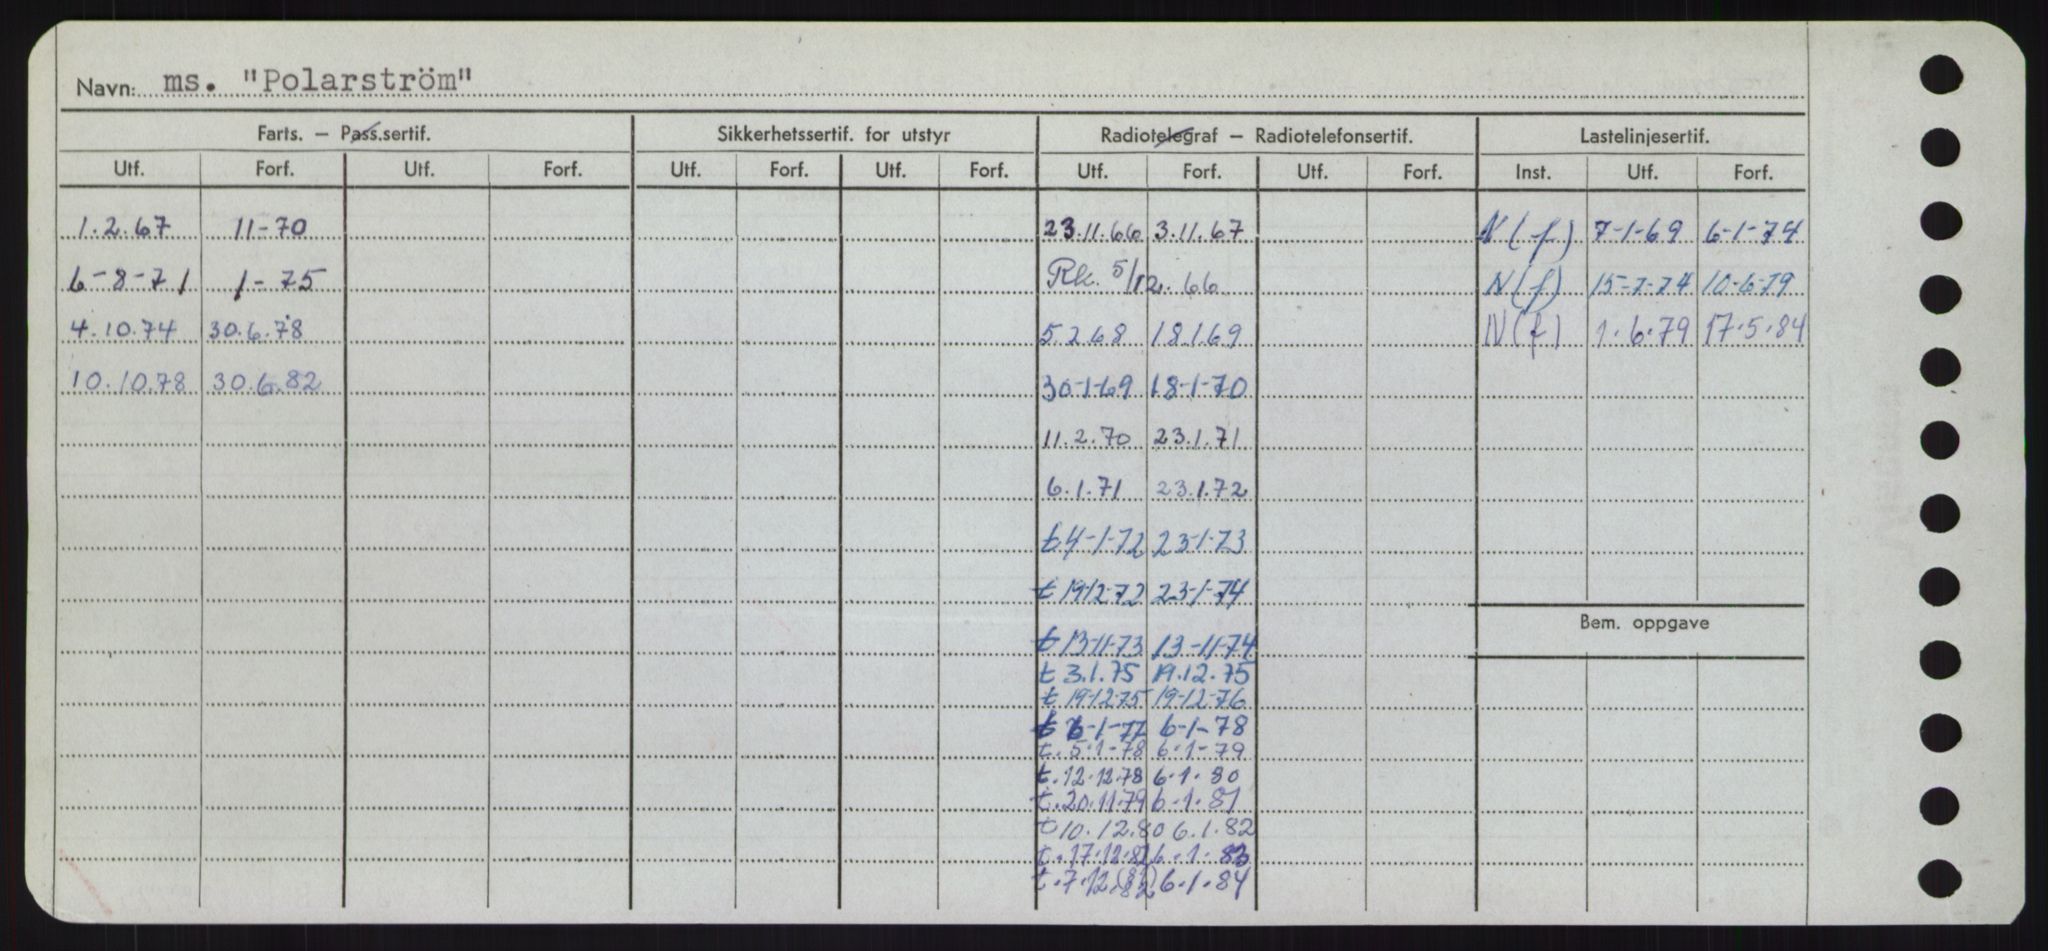 Navn: ms. "Polarström"
Farts. — Pass.sertif. Sikkerhetssertif. for utstyr Radiotelegraf — Radiotelefonsertif. Lastelinjesertif.
Utf. Forf. Utf. Forf. Utf. Forf. Utf. Forf. Utf. Forf. Utf. Forf. Inst. Utf. Forf.
1.2.67 11-70 23.11.66 3.11.67 N(f) 7-1-69 6-1-74
6-8-71 1-75 Rk. 5/12. 66 N(f) 15-7-74 10-6-79
4.10.74 30.6.78 5.2.68 18.1.69 N(f) 1.6.79 17.5.84
10.10.78 30.6.82 30-1-69 18-1-70
11.2.70 23.1.71
6.1.71 23.1.72
t 4-1-72 23-1-73
t 19-12-72 23-1-74
Bem. oppgave
t 13-11-73 13-11-74
t 3.1.75 19.12.75
t. 19-12-75 19-12-76
t 6-1-77 6-1-78
t. 5-1-78 6-1-79
t. 12.12.78 6.1.80
t. 20.11.79 6.1.81
t 10.12.80 6.1.82
t. 17.12.82 6.1.83
t. 7.12. 82 6.1.84